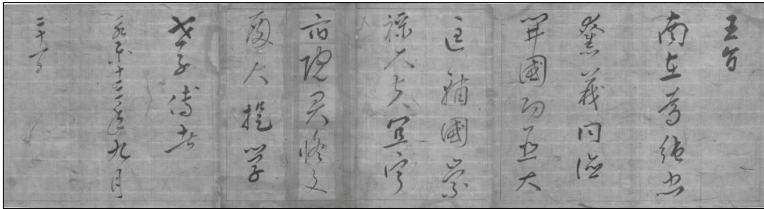 王旨
南在爲純忠
奮義同德
開國功臣大
匡輔國崇
祿大夫宜寧
府院君修文
殿大提學
世子傅者
永樂十二年九月
二十日